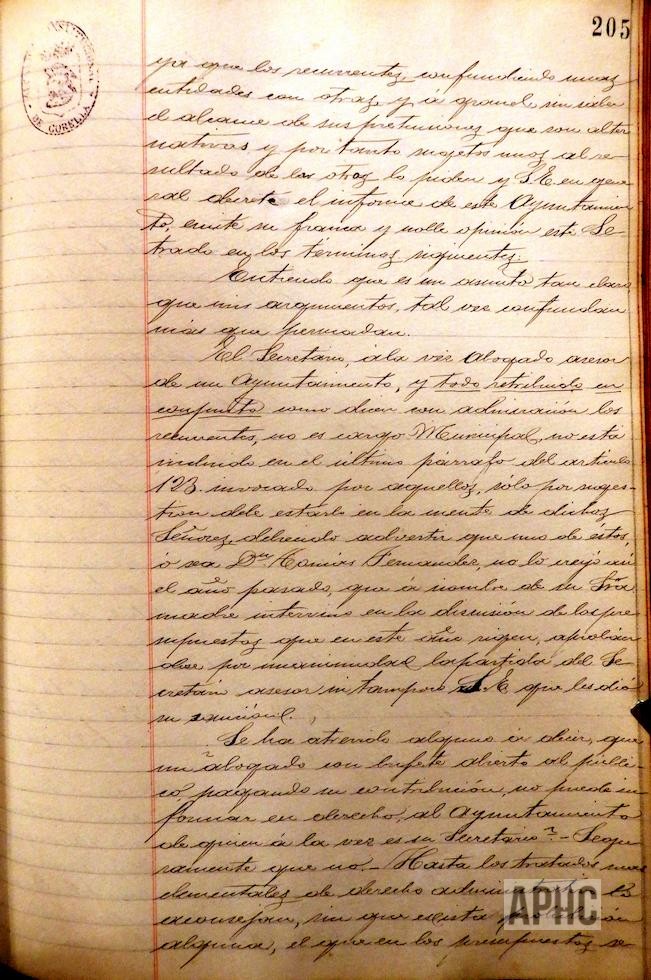 205
DE CORELLA
ya que los recurrentes, confundiendo unas
entidades con otras, y á granel, sin saber
el alcance de sus pretensiones que son alter
nativas y por tanto sujetos unas al re-
sultado de las otras lo piden y S.E. en gene
ral decreté el informe de este Ayuntamien
to, emite su franca y noble opinión este Le-
trado en los términos siguientes:
Entiendo que es un asunto tan claro
que mis argumentos, tal vez confundan
más que persuadan.
El Secretario, á la vez Abogado asesor
de un Ayuntamiento, y todo retribuido en
conjunto como dicen con admiración los
recurrentes, no es cargo Municipal, no está
incluido en el último párrafo del artículo
123 invocado por aquellos, solo por suges-
tion debe estarlo en la mente de dichos
Señores, debiendo advertir que uno de éstos,
ó sea Dn Tomás Fernandez, no lo creyó así
el año pasado, que á nombre de su Sra
madre intervino en la discusión de los pre
supuestos que en este año rigen, aproban
dose por unanimidad la partida del Se
cretario asesor ni tampoco S.E. que les dió
su sanción.
Se ha atrevido alguno á decir, que
un abogado con bufete abierto al publi-
co, pagando su contribución, no puede in
formar en derecho, al Ayuntamiento
de quien á la vez es su Secretario? - Segu
ramente que no. - Hasta los tratados mas
elementales de derecho administrativo lo
aconsejan, sin que exista prohibición
alguna, el que en los presupuestos se
APHC